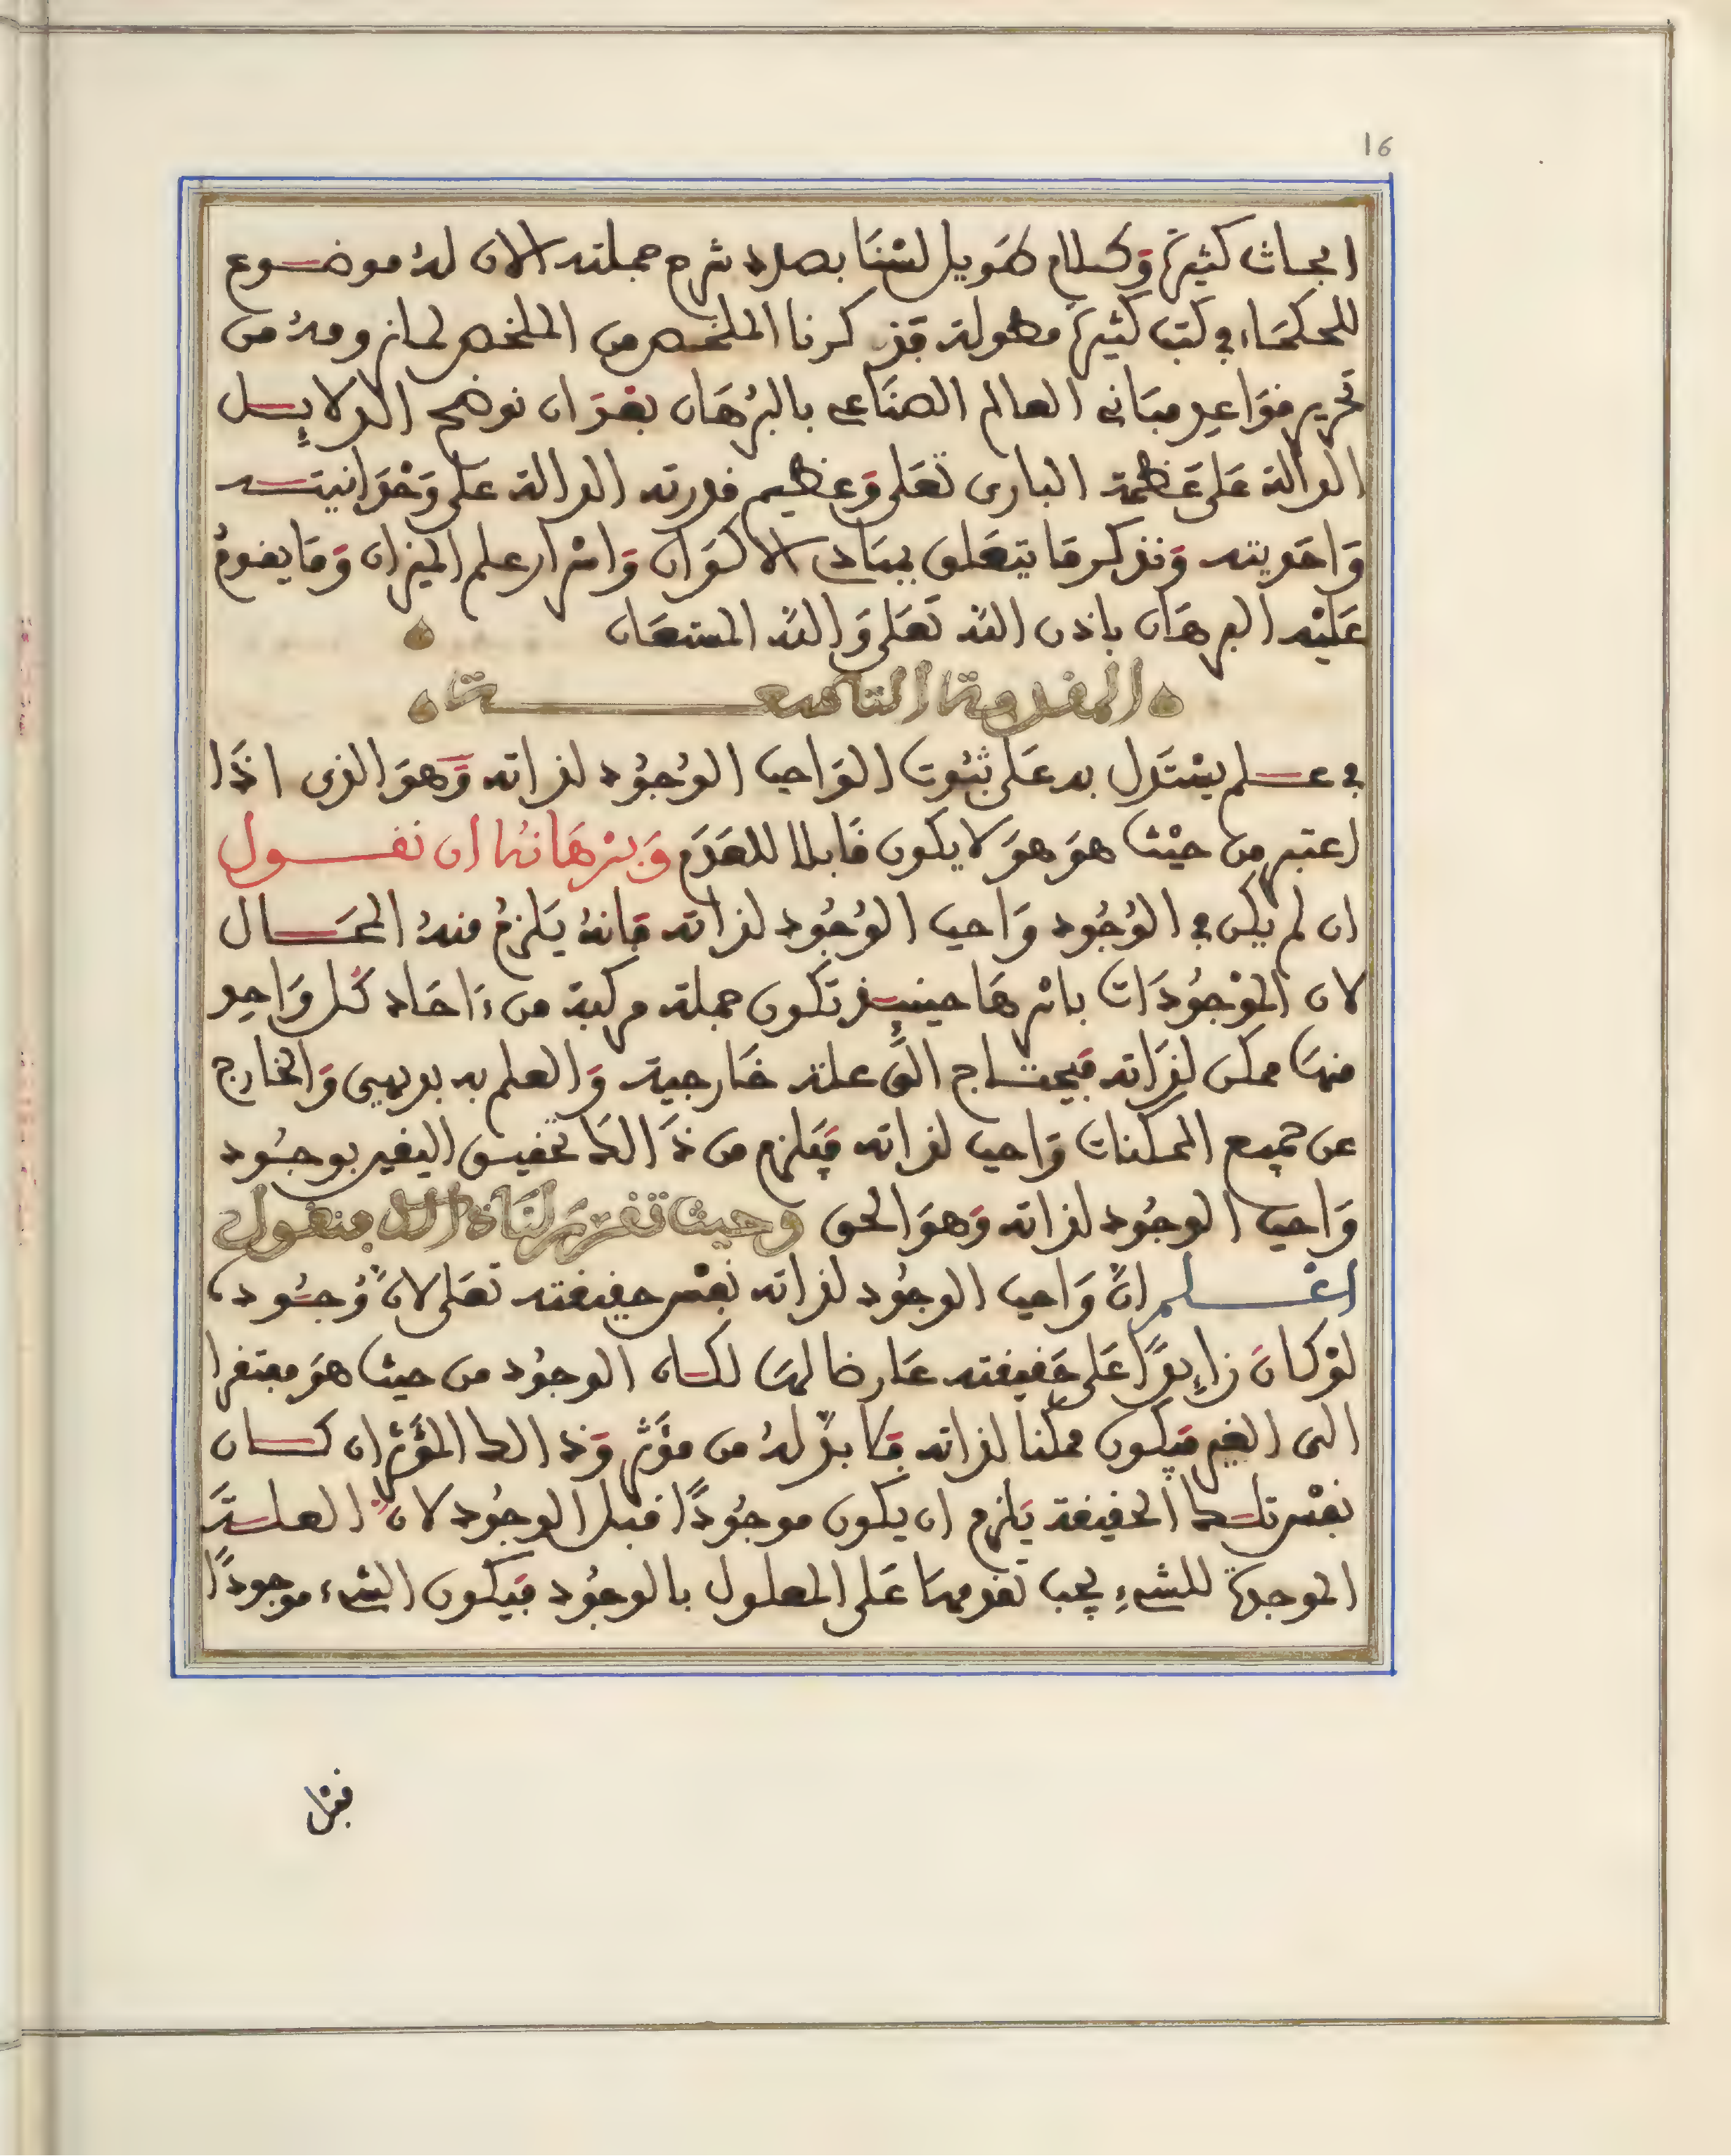 16
ابحاث كثيرة وكلام طويل لسنا بصدد شرح جملته الان له موضوع
للحكماء في كتب كثيرة مطولة فذكرنا الملخص من الملخص لما نرومه من
تحرير قواعد مباني العالم الصناعي بالبرهان بعد ان نوضح الدلايل
الدالة على عظمة الباري تعلى وعظيم قدرته الدالة على وحدانيته
واحديته ونذكر ما يتعلق بمبادي الاكوان واسرار علم الميزان وما يقوم
عليه البرهان باذن الله تعلى والله المستعان
المقدمة التاسعة
في علم يستدل به على ثبوت الواجب الوجود لذاته وهو الذي اذا
اعتبر من حيث هو هو لا يكون قابلا للعدم وبرهانه ان نقول
ان لم يكن في الوجود واجب الوجود لذاته فانه يلزم منه المحال
لان الموجودات باسرها حينئذ تكون جملة مركبة من ءاحاد كل واحد
منها ممكن لذاته فيحتاج الى علة خارجية والعلم به بديهي والخارج
عن جميع الممكنات واجب لذاته فيلزم من ذالك تحقيق اليقين بوجود
واجب الوجود لذاته وهو الحق وحيث تقرر لنا ذالك فنقول
اعلم ان واجب الوجود لذاته نفس حقيقته تعلى لان وجوده
لو كان زايدا على حقيقته عارضا لها لكان الوجود من حيث هو مفتقرا
الى الغير فيكون ممكنا لذاته فلا بد له من مؤثر وذالك المؤثر ان كان
نفس تلك الحقيقة يلزم ان يكون موجودا قبل الوجود لان العلة
الموجدة للشيء يجب تقدمها على المعلول بالوجود فيكون الشيء موجودا
قبل